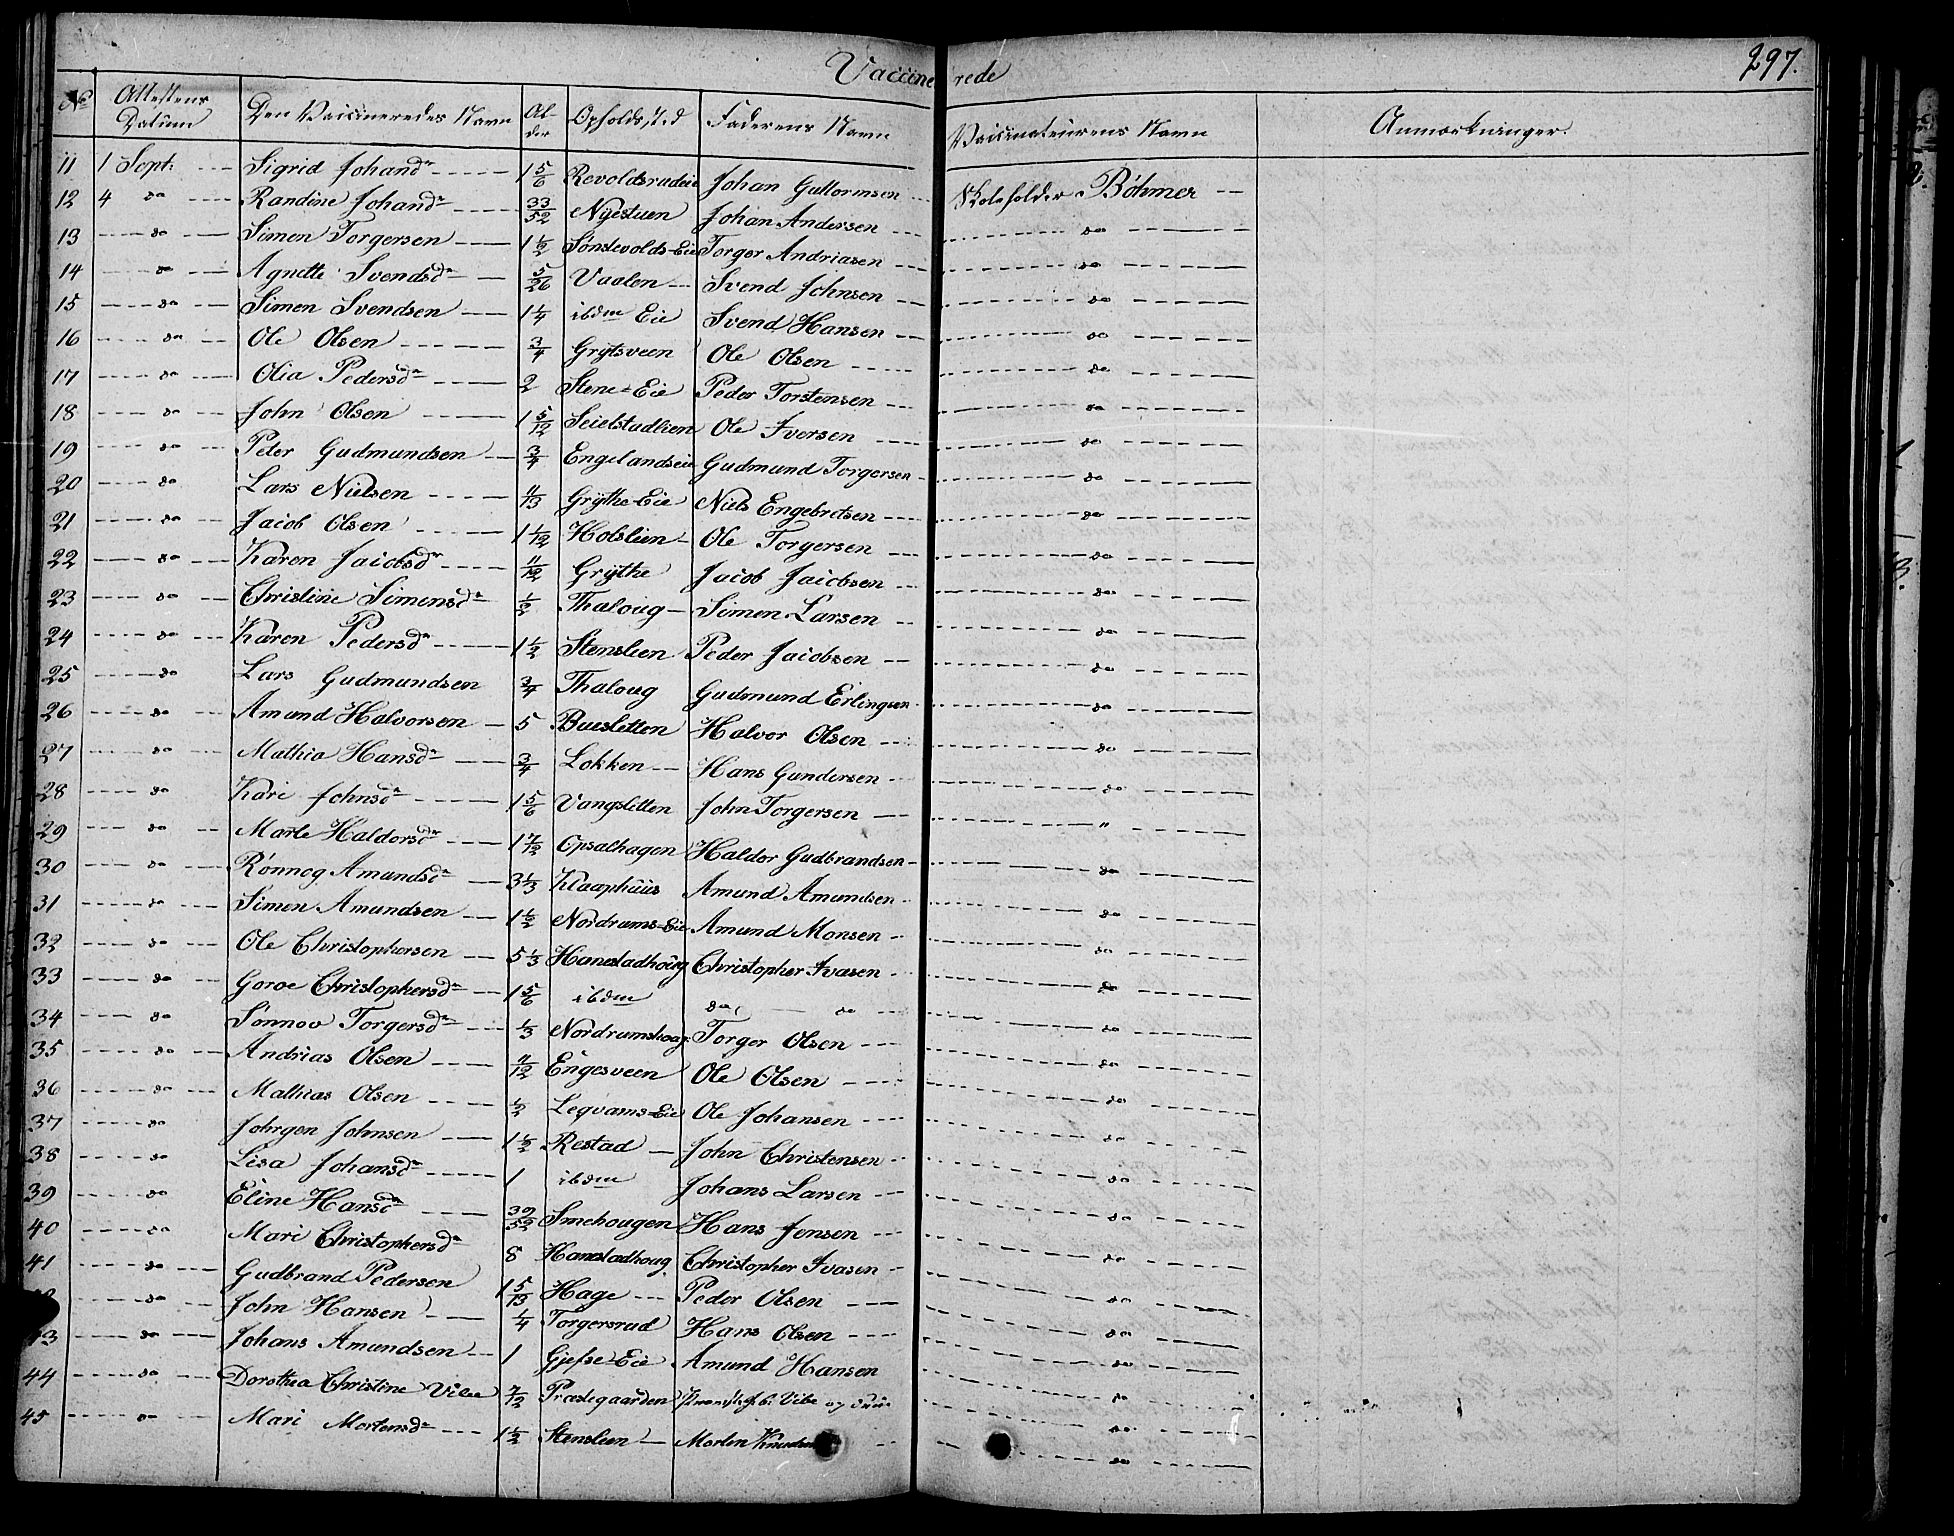 Vaccinerede 297.
No Attestens Datum Den Vaccineredes Navn Alder Opholdsst.d Faderens Navn Vaccinateurens Navn Anmærkninger.
11 1 Sept: Sigrid Johansdr 1 5/6 Revoldsrudeie Johan Guttormsen Skoleholder Böhmer
12 4 do Randine Johansdr 33/52 Nyestuen Johan Andersen do
13 do Simen Torgersen 1 1/2 Sønstevolds-Eie Torger Andriasen do
14 do Agnethe Svendsdr 5/26 Vaalen Svend Johnsen do
15 do Simen Svendsen 1 1/4 ibdm Eie Svend Hansen do
16 do Ole Olsen 3/4 Grytsveen Ole Olsen do
17 do Olia Pedersdr 2 Stene-Eie Peder Torstensen do
18 do John Olsen 1 5/12 Seielstadlien Ole Iversen do
19 do Peter Gudmundsen 3/4 Engelandseie Gudmund Torgersen do
20 do Lars Nielsen 11/13 Grythe-Eie Niels Engebretsen do
21 do Jacob Olsen 1 1/12 Holslien Ole Torgersen do
22 do Karen Jacobsd 11/12 Grythe Jacob Jacobsen do
23 do Christine Simensdr 1/2 Thaloug Simen Larsen do
24 do Karen Pedersdr 1 1/2 Stenslien Peder Jacobsen do
25 do Lars Gudmundsen 3/4 Thaloug Gudmund Erlingsen do
26 do Amund Halvorsen 5 Buesletten Halvor Olsen do
27 do Mathia Hansdr 3/4 Løkken Hans Gundersen do
28 do Kari Johnsdr 1 5/6 Vangsletten John Torgersen "
29 do Marte Haldorsdr 1 7/12 Opsalhagen Haldor Gudbrandsen do
30 do Rønnog Amundsdr 3 1/3 Klaaphuus Amund Amundsen do
31 do Simen Amundsen 1 1/2 Nordrums-Eie Amund Monsen do
32 do Ole Christophersen 5 1/3 Hanestadhoug Christopher Ivasen do
33 do Goroe Christophersdr 1 5/6 ibdm do do do
34 do Sønnov Torgersdr 1/3 Nordrumshoug Torger Olsen do
35 do Andrias Olsen 11/12 Engesveen Ole Olsen do
36 do Mathias Olsen 1/2 Leqvams-Eie Ole Johansen do
37 do Johrgen Johnsen 1 1/2 Restad John Christensen do
38 do Lisa Johansdr 1 ibdm Johans Larsen do
39 do Eline Hansdr 39/52 Smehougen Hans Jensen do
40 do Mari Christophersdr 8 Hanestadhoug Christopher Ivasen do
41 do Gudbrand Pedersen 1 5/13 Hage Peder Olsen do
do John Hansen 1/4 Torgersrud Hans Olsen do
43 do Johans Amundsen 1 Gjefse-Eie Amund Hansen do
44 do Dorothea Christine Vibe 7/12 Præstegaarden Vibe do
45 do Mari Mortensdr 1 1/2 Stenslien Morten Knudsen do